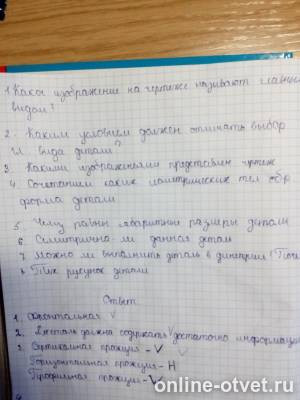 1. Какое изображение на чертеже называют главным
видом?
2. Каким условием должен отличать выбор
гл. вида детали?
3. Какими изображениями представлен чертеж
4. Сочетанием каких геометрических тел обр
форма детали
5. Чему равны габаритные размеры детали
6. Симметрична ли данная деталь
7. Можно ли выполнить деталь в диметрии?
8. рисунок детали
Ответ
1. Фронтальная V
2. Деталь должна содержать достаточно информации
3. Вертикальная проекция - V
Горизонтальная проекция - H
Профильная проекция - W
4
online-otvet.ru